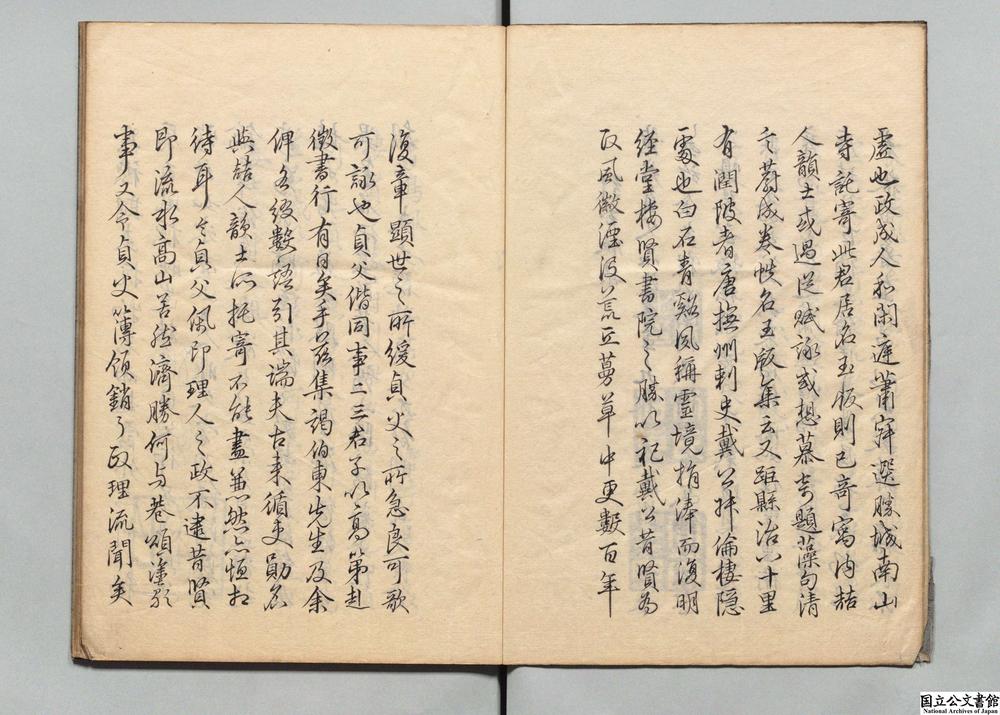 虚也政成人和閑庭蕭寂選勝城南山
寺託寄此君居名玉版則已奇寓內喆
人韻士或過從賦詠或想慕奇題藻句清
言蔚成卷帙名玉版集云又距縣治六十里
有潤陂者唐撫州刺史戴公抃倫棲隱
處也白石青谿夙稱靈境捐俸而復明
經堂棲賢書院之勝以祀戴公昔賢為
政風徽湮沒荒丘蔓草中更數百年
復章顯世之所緩貞父之所急良可歌
可詠也貞父偕同事二三君子以高第赴
徵書行有日矣手茲集謁伯東先生及余
俾各綴數語引其端夫古來循吏勛名
與喆人韻士所托寄不能盡兼然亦恒相
待耳今貞父佩印理人之政不遽昔賢
即流水高山善於濟勝何與巷頌塗歌
事又令貞父簿領銷亡政理流聞矣
国立公文書館
National Archives of Japan